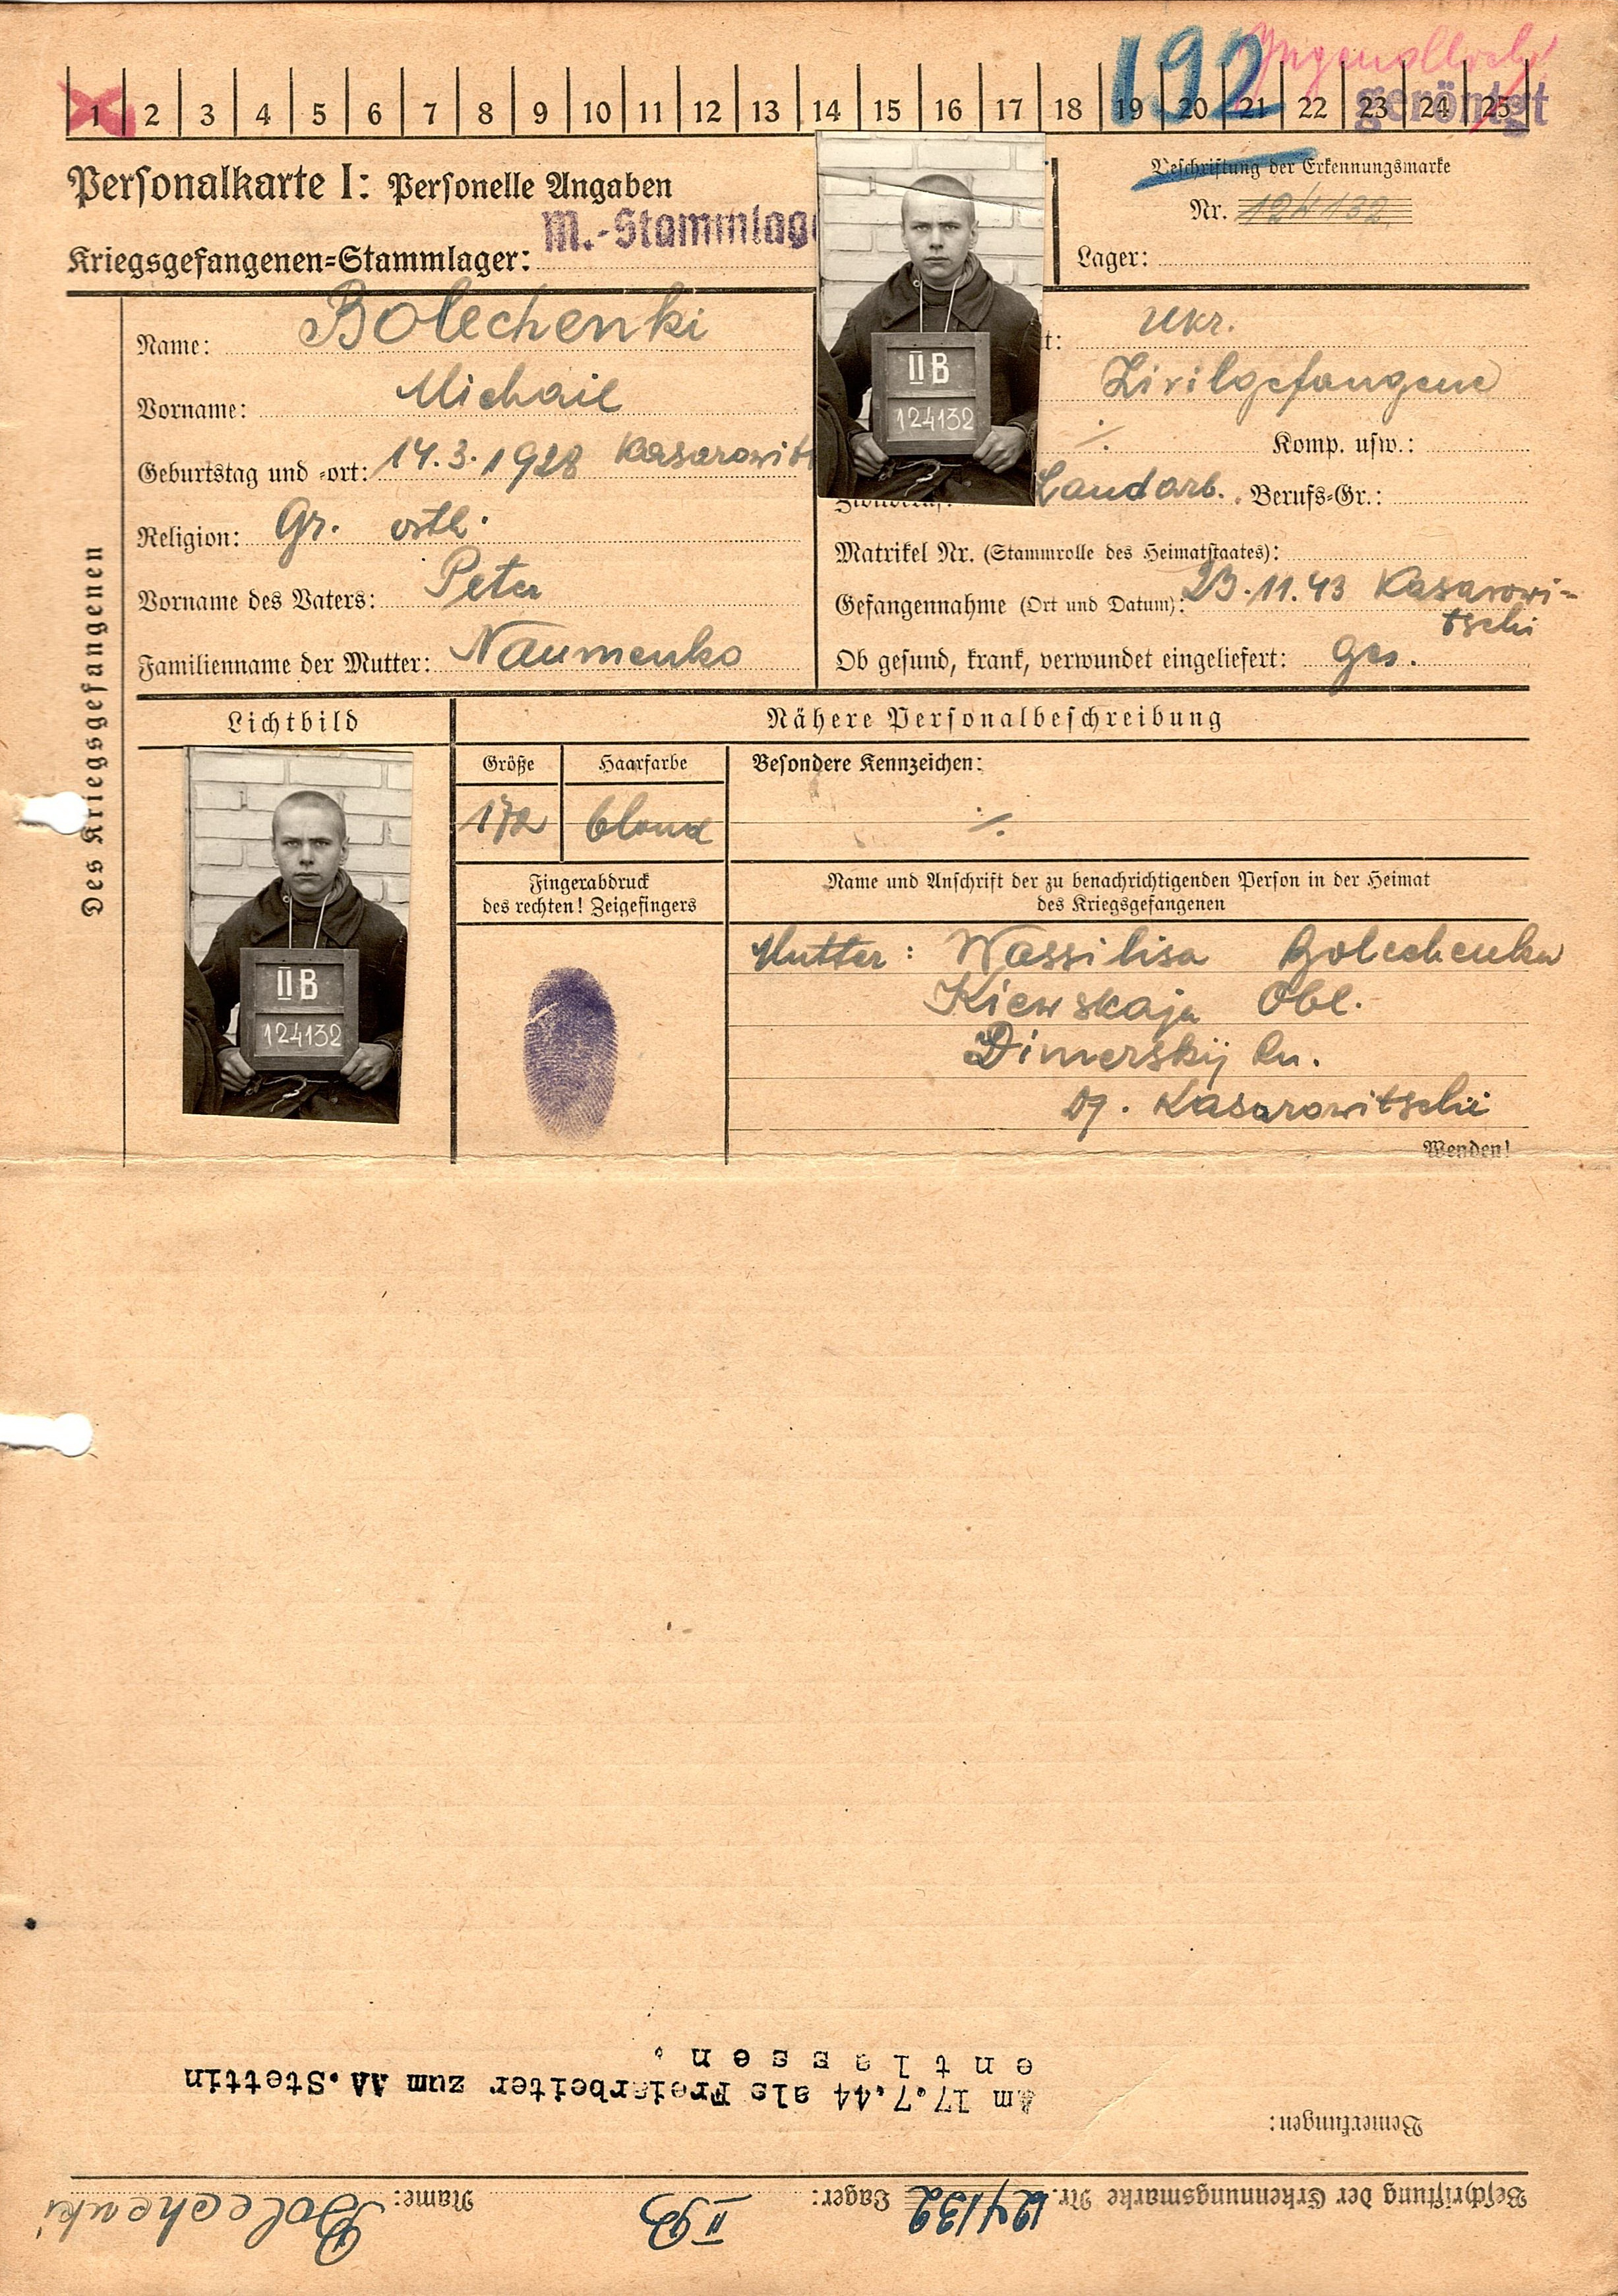 192 Jugendlich
1 2 3 4 5 6 7 8 9 10 11 12 13 14 15 16 17 18 19 20 21 22 23 24 25
geröntgt
Personalkarte I: Personelle Angaben
M.-Stammlag
Kriegsgefangenen-Stammlager:
Beschriftung der Erkennungsmarke
Nr. 124132
Lager:
Des Kriegsgefangenen
Name: Bolechenki
Vorname: Michail
Geburtstag und -ort: 14.3.1928 Kasarowit
Religion: Gr. ortl.
Vorname des Vaters: Peter
Familienname der Mutter: Naumenko
II B
124132
t: Ukr.
Zivilgefangene
./. Komp. usw.:
Landarb. Berufs-Gr.:
Matrikel Nr. (Stammrolle des Heimatstaates):
Gefangennahme (Ort und Datum): 23.11.43 Kasarowi-
tschi
Ob gesund, krank, verwundet eingeliefert: ges.
Lichtbild
Nähere Personalbeschreibung
II B
124132
Größe Haarfarbe
172 blond
Besondere Kennzeichen:
./.
Fingerabdruck
des rechten! Zeigefingers
Name und Anschrift der zu benachrichtigenden Person in der Heimat
des Kriegsgefangenen
Mutter: Wassilisa Bolechenko
Kiewskaja Obl.
Dimerskij Rn.
Kasarowitschi
Wenden!
Beschriftung der Erkennungsmarke Nr. 124132 Lager: II B Name: Bolechenki
Bemerkungen:
Am 17.7.44 als Freiarbeiter zum AA. Stettin
entlassen.